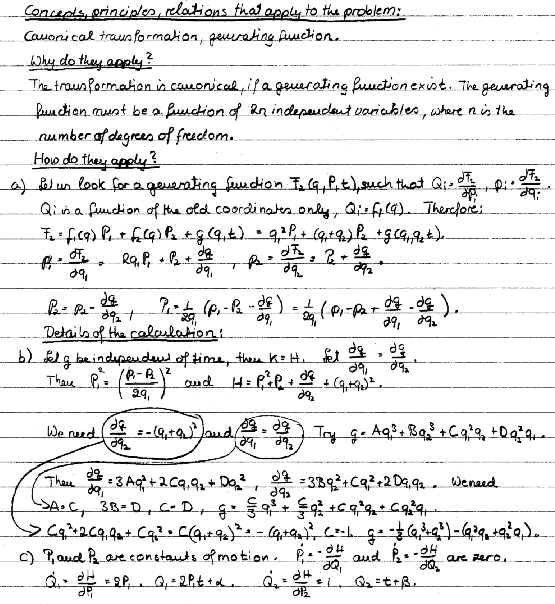 Concepts, principles, relations that apply to the problem:
Canonical transformation, generating function.
Why do they apply?
The transformation is canonical, if a generating function exist. The generating
function must be a function of 2n independent variables, where n is the
number of degrees of freedom.
How do they apply?
a) Let us look for a generating function F₂(q,P,t), such that Qᵢ = ∂F₂/∂Pᵢ, pᵢ = ∂F₂/∂qᵢ.
Qᵢ is a function of the old coordinates only, Qᵢ = fᵢ(q). Therefore:
F₂ = f₁(q) P₁ + f₂(q) P₂ + g(q,t) = q₁²P₁ + (q₁+q₂)P₂ + g(q₁,q₂,t).
p₁ = ∂F₂/∂q₁ = 2q₁P₁ + P₂ + ∂g/∂q₁, p₂ = ∂F₂/∂q₂ = P₂ + ∂g/∂q₂.
P₂ = p₂ - ∂g/∂q₂, P₁ = 1/2q₁ (p₁ - P₂ - ∂g/∂q₁) = 1/2q₁ (p₁ - p₂ + ∂g/∂q₁ - ∂g/∂q₂).
Details of the calculation:
b) Let g be independent of time, then K = H. Let ∂g/∂q₁ = ∂g/∂q₂.
Then P₁² = ((p₁-p₂)/2q₁)² and H = P₁² + P₂ + ∂g/∂q₂ + (q₁+q₂)².
We need ∂g/∂q₂ = -(q₁+q₂)² and ∂g/∂q₁ = ∂g/∂q₂. Try g = Aq₁³ + Bq₂³ + Cq₁²q₂ + Dq₂²q₁.
Then ∂g/∂q₁ = 3Aq₁² + 2Cq₁q₂ + Dq₂², ∂g/∂q₂ = 3Bq₂² + Cq₁² + 2Dq₁q₂. We need
3A = C, 3B = D, C = D, g = C/3 q₁³ + C/3 q₂³ + Cq₁²q₂ + Cq₂²q₁.
Cq₂² + 2Cq₁q₂ + Cq₁² = C(q₁+q₂)² = -(q₁+q₂)², C = -1. g = -1/3(q₁³+q₂³) - (q₁²q₂ + q₂²q₁).
c) P₁ and P₂ are constants of motion. Ṗ₁ = -∂H/∂Q₁ and Ṗ₂ = -∂H/∂Q₂ are zero.
Q̇₁ = ∂H/∂P₁ = 2P₁. Q₁ = 2P₁t + α. Q̇₂ = ∂H/∂P₂ = 1, Q₂ = t + β.